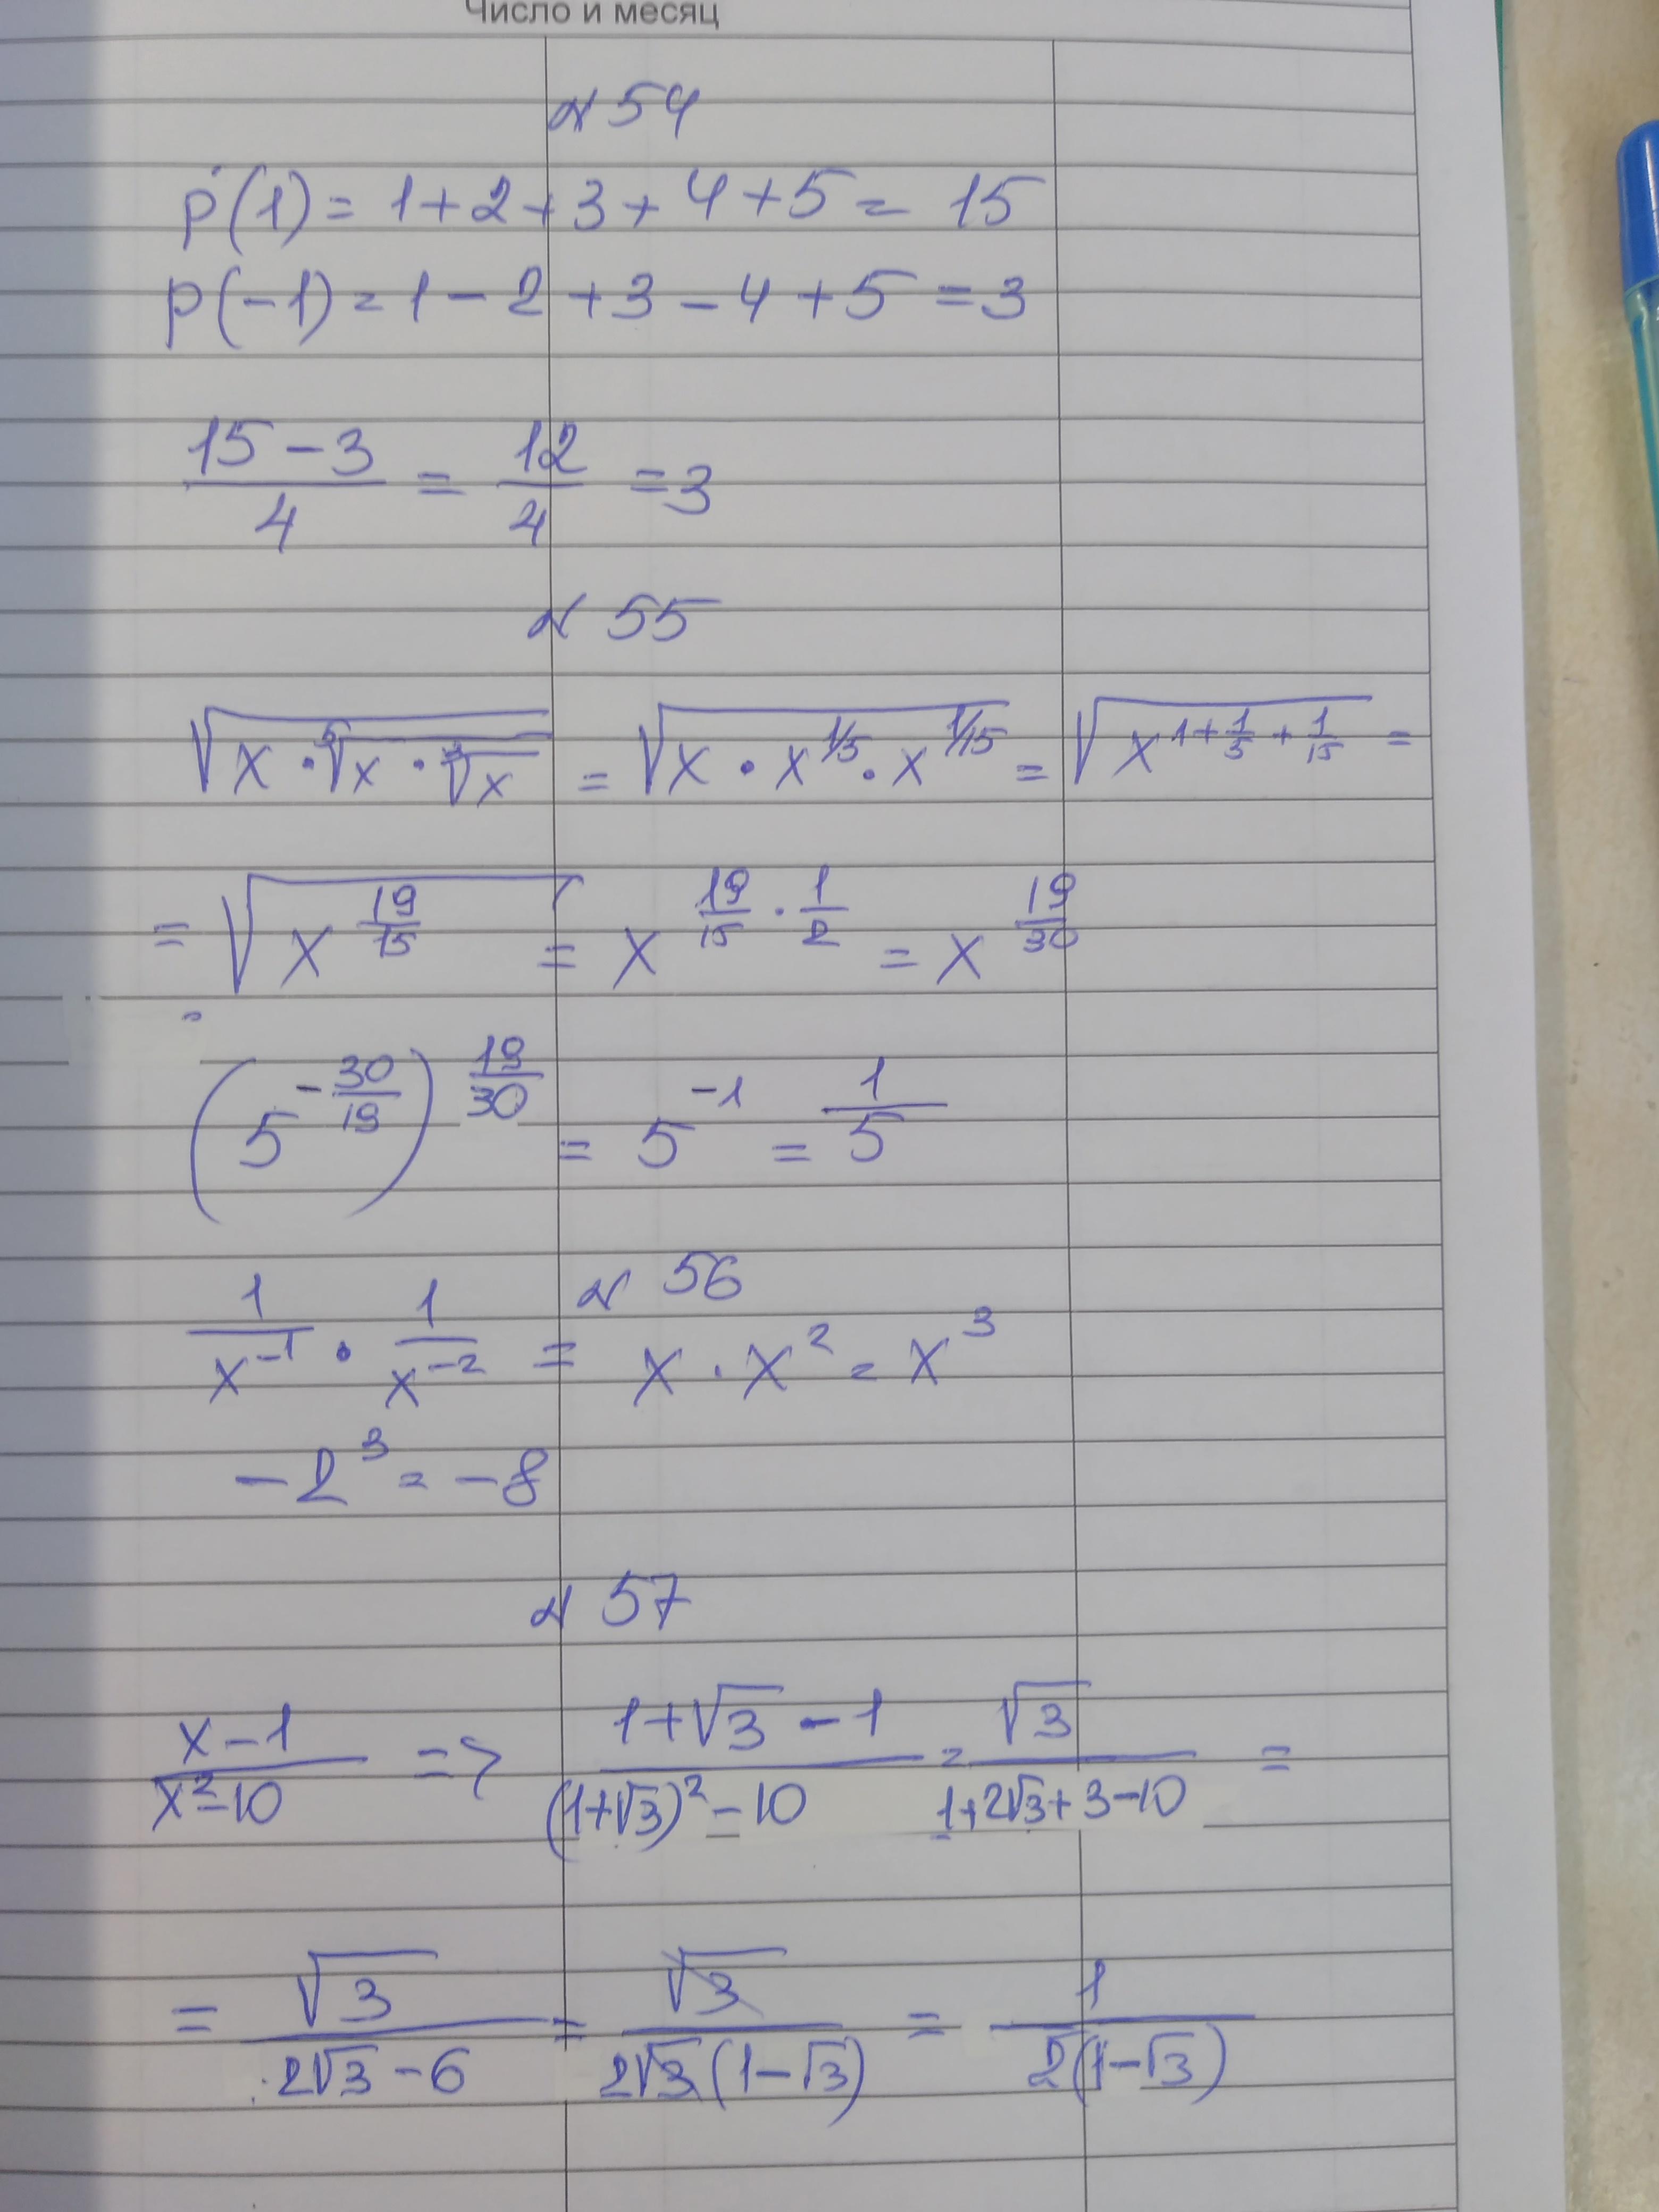 Число и месяц
№ 54
p(1) = 1+2+3+4+5 = 15
p(-1) = 1-2+3-4+5 = 3
(15-3)/4 = 12/4 = 3
№ 55
√(x·⁵√(x·³√x)) = √(x·x^(1/5)·x^(1/15)) = √(x^(1+1/5+1/15)) =
= √(x^(19/15)) = x^(19/15 · 1/2) = x^(19/30)
(5^(-30/19))^(19/30) = 5^(-1) = 1/5
№ 56
1/x^(-1) · 1/x^(-2) = x·x² = x³
-2³ = -8
№ 57
(x-1)/(x²-10) => (1+√3-1)/((1+√3)²-10) = √3/(1+2√3+3-10) =
= √3/(2√3-6) = √3/(2√3(1-√3)) = 1/(2(1-√3))